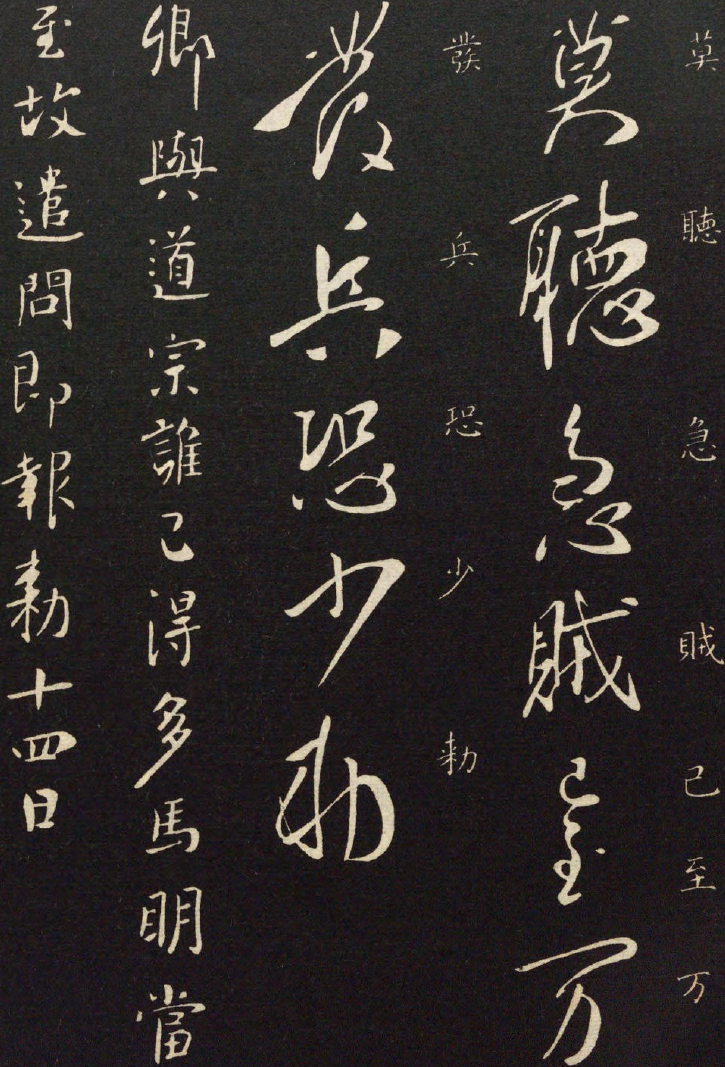 莫聽急賊已至万
莫聽急賊已至万
發兵恐少勅
發兵恐少勅
卿與道宗誰已得多馬明當
至故遣問即報勅十四日